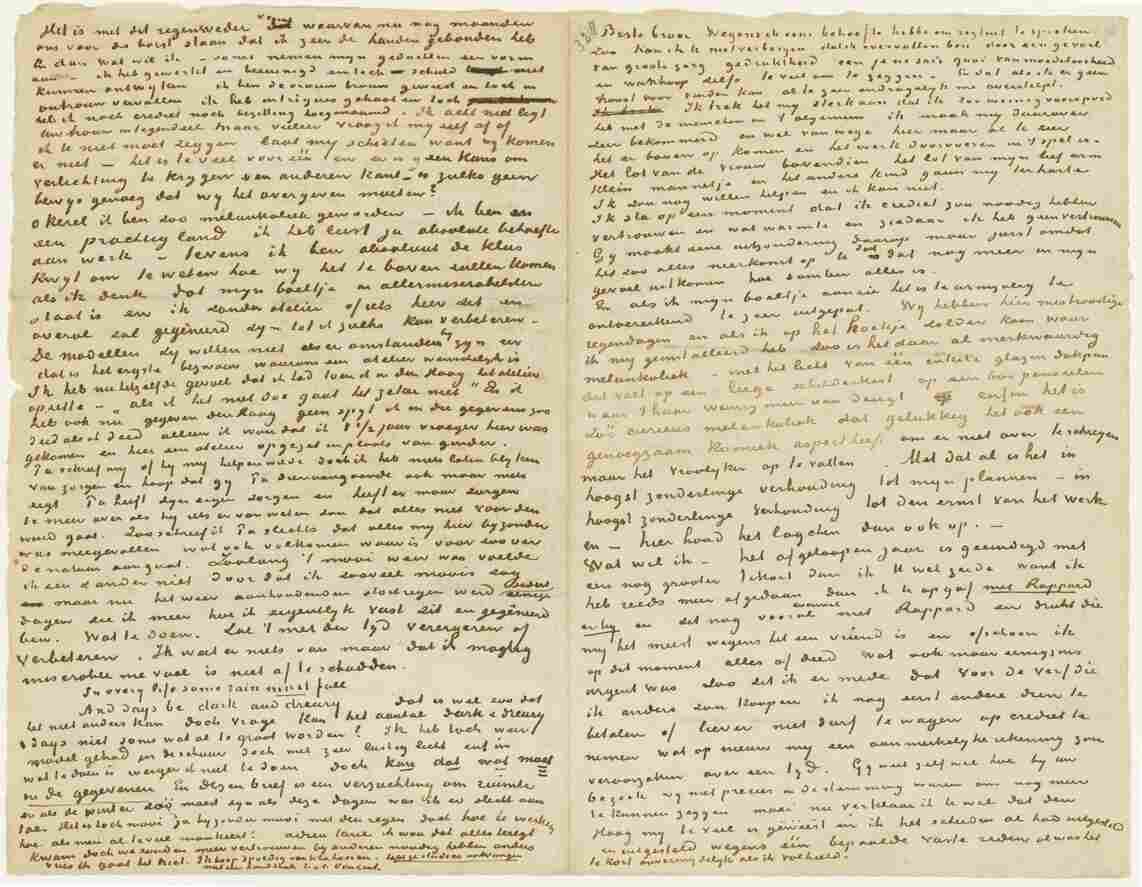 Het is met dit regenweder waarvan nu nog maanden
ons voor de borst staan dat ik zeer de handen gebonden heb
En dan wat wil ik – soms nemen mijn gedachten een vorm
aan – ik heb gewerkt en bezuinigd en toch schuld niet
kunnen ontwijken ik ben de vrouw trouw geweest en toch in
ontrouw vervallen ik heb intrigues gehaat en toch
heb ik noch crediet noch bezitting hoegenaamd. Ik acht niet ligt
Uw trouw integendeel maar veeleer vraag ik my zelf af of
ik U niet moet zeggen laat my schieten want wij komen
er niet – het is te veel voor één en er is geen kans om
verlichting te krygen van anderen kant – is zulks geen
bewys genoeg dat wy het overgeven moeten?
o kerel ik ben zoo melankoliek geworden – ik ben in
een prachtig land ik heb lust ja absolute behoefte
aan werk – tevens ik ben absoluut de kluts
kwyt om te weten hoe wy het te boven zullen komen
als ik denk dat mijn boeltje in allermiserabelsten
staat is en ik zonder atelier of iets hier zit en
overal zal gegêneerd zyn tot ik zulks kan verbeteren.
De modellen zy willen niet als er omstanders by zyn en
dat is het ergste bezwaar waarom een atelier wenschelyk is
Ik heb nu hetzelfde gevoel dat ik had toen ik in den Haag het atelier
opzette – „als ik het niet doe gaat het zeker niet" En ik
heb ook nu gegeven den Haag geen spyt ik in die gegevens zoo
deed als ik deed alleen ik wou dat ik 1 1/2 jaar vroeger hier was
gekomen en hier een atelier opgezet in plaats van ginder.
Pa schreef my of hy my helpen wilde doch ik heb niets laten blyken
van zorgen en hoop dat gy Pa dienaangaande ook maar niets
zegt Pa heeft zyn eigen zorgen en heeft er maar zorgen
te meer over als hy iets er van weten zou dat alles niet voor den
wind gaat. Zoo schreef ik Pa slechts dat alles my hier byzonder
was meegevallen wat ook volkomen waar is voor zoo ver
de natuur aangaat. Zoolang 't mooi weer was voelde
ik een & ander niet doordat ik zooveel moois zag
maar nu het weer aanhoudende stortregen werd
dagen zie ik meer hoe ik eigentlyk vast zit en gegêneerd
ben. Wat te doen. Zal 't met der tyd verergeren of
verbeteren. Ik weet er niets van maar dat ik magtig
miserable me voel is niet af te schudden.
In every life some rain must fall
And days be dark and dreary dat is wel zoo dat
het niet anders kan doch vrage kan het aantal dark & dreary
days niet soms wat al te groot worden? Ik heb toch weer
model gehad in de schuur doch met zeer lastig licht enfin
wat te doen is weiger ik niet te doen doch kan dat wat moet
in de gegevenen En dezen brief is een verzuchting om ruimte
en als de winter zoo moet zyn als deze dagen was ik er slecht aan
toe. Het is toch mooi ja byzonder mooi met den regen doch hoe te werken
hoe als men al te veel mankeert? adieu kerel ik wou dat alles teregt
kwam doch we zouden meer vertrouwen by anderen noodig hebben anders
vrees ik gaat het niet. Ik hoop spoedig van U te hooren. hoop ge studies ontvangen
met een handdruk t. à t. Vincent.
Beste broer Wegens ik eens behoefte heb om regtuit te spreken
Zoo kan ik U niet verbergen dat ik overvallen ben door een gevoel
van groote zorg gedruktheid een je ne sais quoi van moedeloosheid
en wanhoop zelfs te veel om te zeggen. En dat als ik er geen
troost voor vinden kan al te zeer ondragelyk me overstelpt.
Ik trek het my sterk aan dat ik zoo weinig voorspoed
heb met de menschen in 't algemeen ik maak my daarover
zeer bekommerd en wel van wege hier maar al te zeer
het er boven op komen en het werk doorvoeren in 't spel is.
Het lot van de vrouw bovendien het lot van myn lief arm
klein mannetje en het andere kind gaan my ter harte
Ik zou nog willen helpen en ik kan niet.
Ik sta op een moment dat ik crediet zou noodig hebben
vertrouwen en wat warmte en ziedaar ik heb geen vertrouwen
Gy maakt eene uitzondering daarop maar juist omdat
het zoo alles neerkomt op U doet dat nog meer in myn
gevoel uitkomen hoe somber alles is.
En als ik mijn boeltje aanzie het is te armzalig te
ontoereikend te zeer uitgeput. Wy hebben hier mistroostige
regendagen en als ik op het hoekje zolder kom waar
ik my geinstalleerd heb zoo is het daar al merkwaardig
melankoliek – met het licht van één enkele glazen dakpan
dat valt op een leege schilderkist op een bos penseelen
waar 't haar weinig meer van deugt enfin het is
zóó curieus melankoliek dat gelukkig het ook een
genoegzaam komiek aspect heeft om er niet over te schreijen
maar het vroolyker op te vatten. Met dat al is het in
hoogst zonderlinge verhouding tot mijn plannen – in
hoogst zonderlinge verhouding tot den ernst van het werk
en – hier houd het lagchen dan ook op. –
Wat wil ik – het afgeloopen jaar is geeindigd met
een nog grooter te kort dan ik U wel zeide want ik
heb reeds meer afgedaan dan ik U opgaf met Rappard
er by en dit nog vooral met Rappard en drukt die
my het meest wegens het een vriend is en ofschoon ik
op dit moment alles of deed wat ook maar eenigzins
urgent was zoo zit ik er mede dat voor de verf die
ik anders zou koopen ik nog eerst andere dien te
betalen of liever niet durf te wagen op crediet te
nemen wat op nieuw my een aanmerkelyke rekening zou
veroorzaken over een tyd. Gy weet zelf wel hoe by Uw
bezoek wy niet precies in de stemming waren om nog meer
te kunnen zeggen maar nu verklaar ik U wel dat den
Haag my te veel is gewéést en ik het scheiden al had uitgesteld
en uitgesteld wegens een bepaalde vaste reden al was het
te kort onvermydelyk als ik volhield.